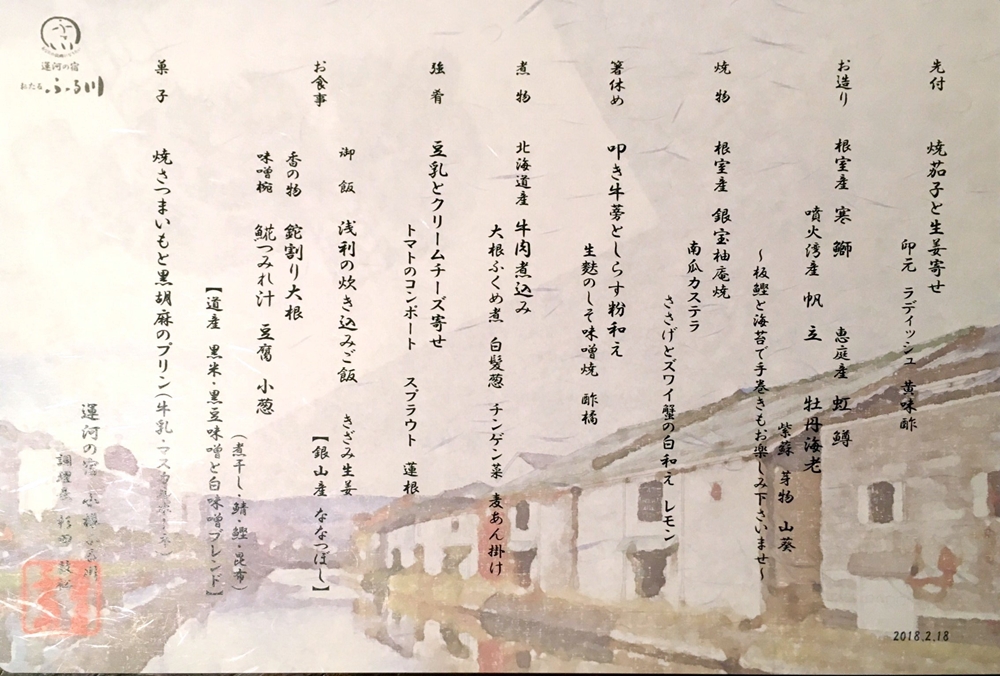 先付　焼茄子と生姜寄せ
印元　ラディッシュ　黄味酢
お造り　根室産　寒鰤　恵庭産　虹鱒
噴火湾産　帆立　牡丹海老
紫蘇　芽物　山葵
～板鰹と海苔で手巻きもお楽しみ下さいませ～
焼物　根室産　銀宝柚庵焼
南瓜カステラ
ささげとズワイ蟹の白和え　レモン
箸休め　叩き牛蒡としらす粉和え
生麩のしそ味噌焼　酢橘
煮物　北海道産　牛肉煮込み
大根ふくめ煮　白髪葱　チンゲン菜　麦あん掛け
強肴　豆乳とクリームチーズ寄せ
トマトのコンポート　スプラウト　蓮根
お食事　御飯　浅利の炊き込みご飯　きざみ生姜
【銀山産　ななつぼし】
香の物　鉈割り大根
味噌椀　糀つみれ汁　豆腐　小葱
（煮干し・鯖・鰹・昆布）
【道産　黒米・黒豆味噌と白味噌ブレンド】
菓子　焼さつまいもと黒胡麻のプリン（牛乳・マスカルポーネ）
運河の宿　小樽ふる川
調理長
運河の宿
おたる　ふる川
2018.2.18